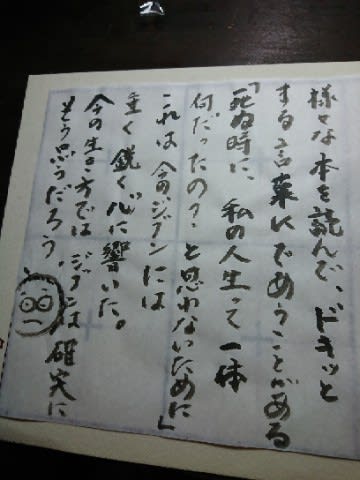 様々な本を読んで、ドキッと
する言葉にであうことがある
「死ぬ時に、私の人生って一体
何だったの？と思わないために」
これは今のジブンには
重く鋭く心に響いた。
今の生き方では、ジブンは確実に
そう思うだろう